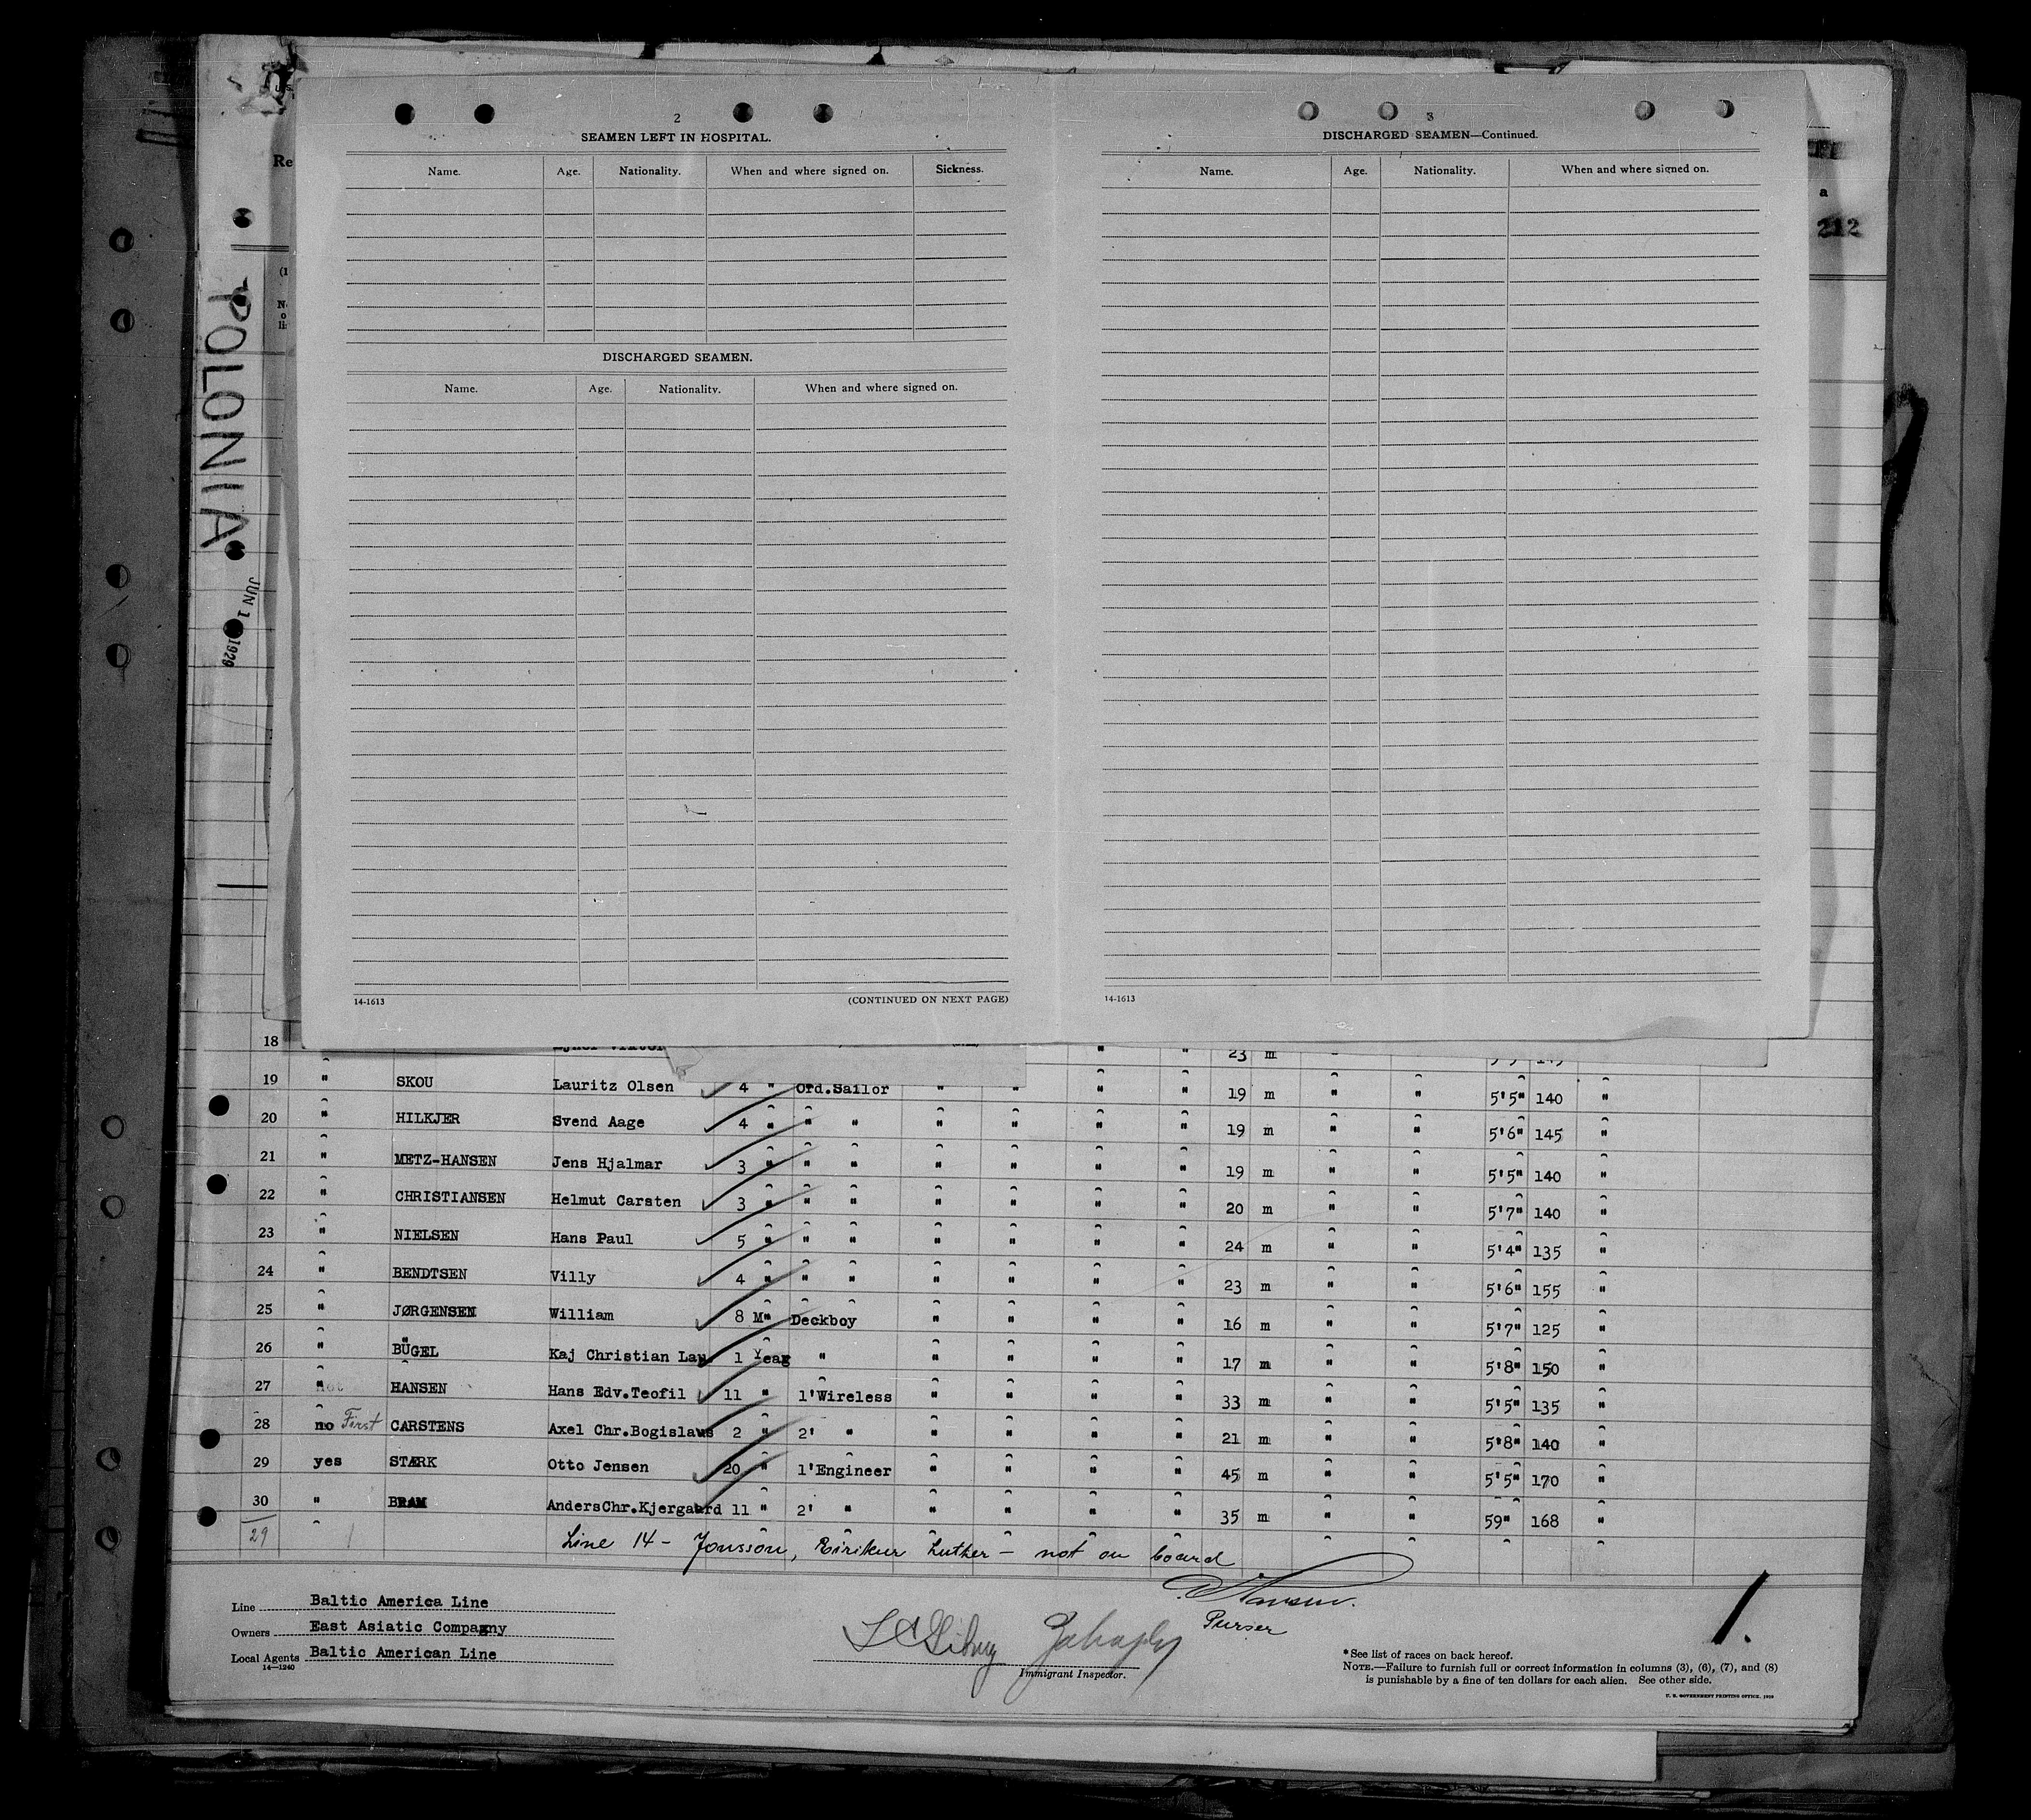 POLONIA
JUN 1 1929
Re
a
212
2
SEAMEN LEFT IN HOSPITAL.
Name. Age. Nationality. When and where signed on. Sickness.
DISCHARGED SEAMEN.
Name. Age. Nationality. When and where signed on.
14-1613 (CONTINUED ON NEXT PAGE)
3
DISCHARGED SEAMEN—Continued.
Name. Age. Nationality. When and where signed on.
14-1613
18 23 m
19 " SKOU Lauritz Olsen 4 " Ord.Sailor " " " " 19 m " " 5'5" 140 "
20 " HILKJER Svend Aage 4 " " " " " " " 19 m " " 5'6" 145 "
21 " METZ-HANSEN Jens Hjalmar 3 " " " " " " " 19 m " " 5'5" 140 "
22 " CHRISTIANSEN Helmut Carsten 3 " " " " " " " 20 m " " 5'7" 140 "
23 " NIELSEN Hans Paul 5 " " " " " " " 24 m " " 5'4" 135 "
24 " BENDTSEN Villy 4 " " " " " " " 23 m " " 5'6" 155 "
25 " JØRGENSEN William 8 M" Deckboy " " " " 16 m " " 5'7" 125 "
26 " BÜGEL Kaj Christian Lau. 1 Year " " " " " 17 m " " 5'8" 150 "
27 " HANSEN Hans Edv.Teofil 11 " 1'Wireless " " " " 33 m " " 5'5" 135 "
28 no First CARSTENS Axel Chr.Bogislaus 2 " 2' " " " " " 21 m " " 5'8" 140 "
29 yes STÆRK Otto Jensen 20 " 1'Engineer " " " " 45 m " " 5'5" 170 "
30 " BRAM AndersChr.Kjergaard 11 " 2' " " " " " 35 m " " 59" 168 "
29 Line 14 - Jonsson, Eirikur Luther - not on board
Hansen.
Purser
Line Baltic America Line
Owners East Asiatic Company
Local Agents Baltic American Line
14—1240
Immigrant Inspector.
1.
*See list of races on back hereof.
NOTE.—Failure to furnish full or correct information in columns (3), (6), (7), and (8)
is punishable by a fine of ten dollars for each alien. See other side.
U. S. GOVERNMENT PRINTING OFFICE. 1928